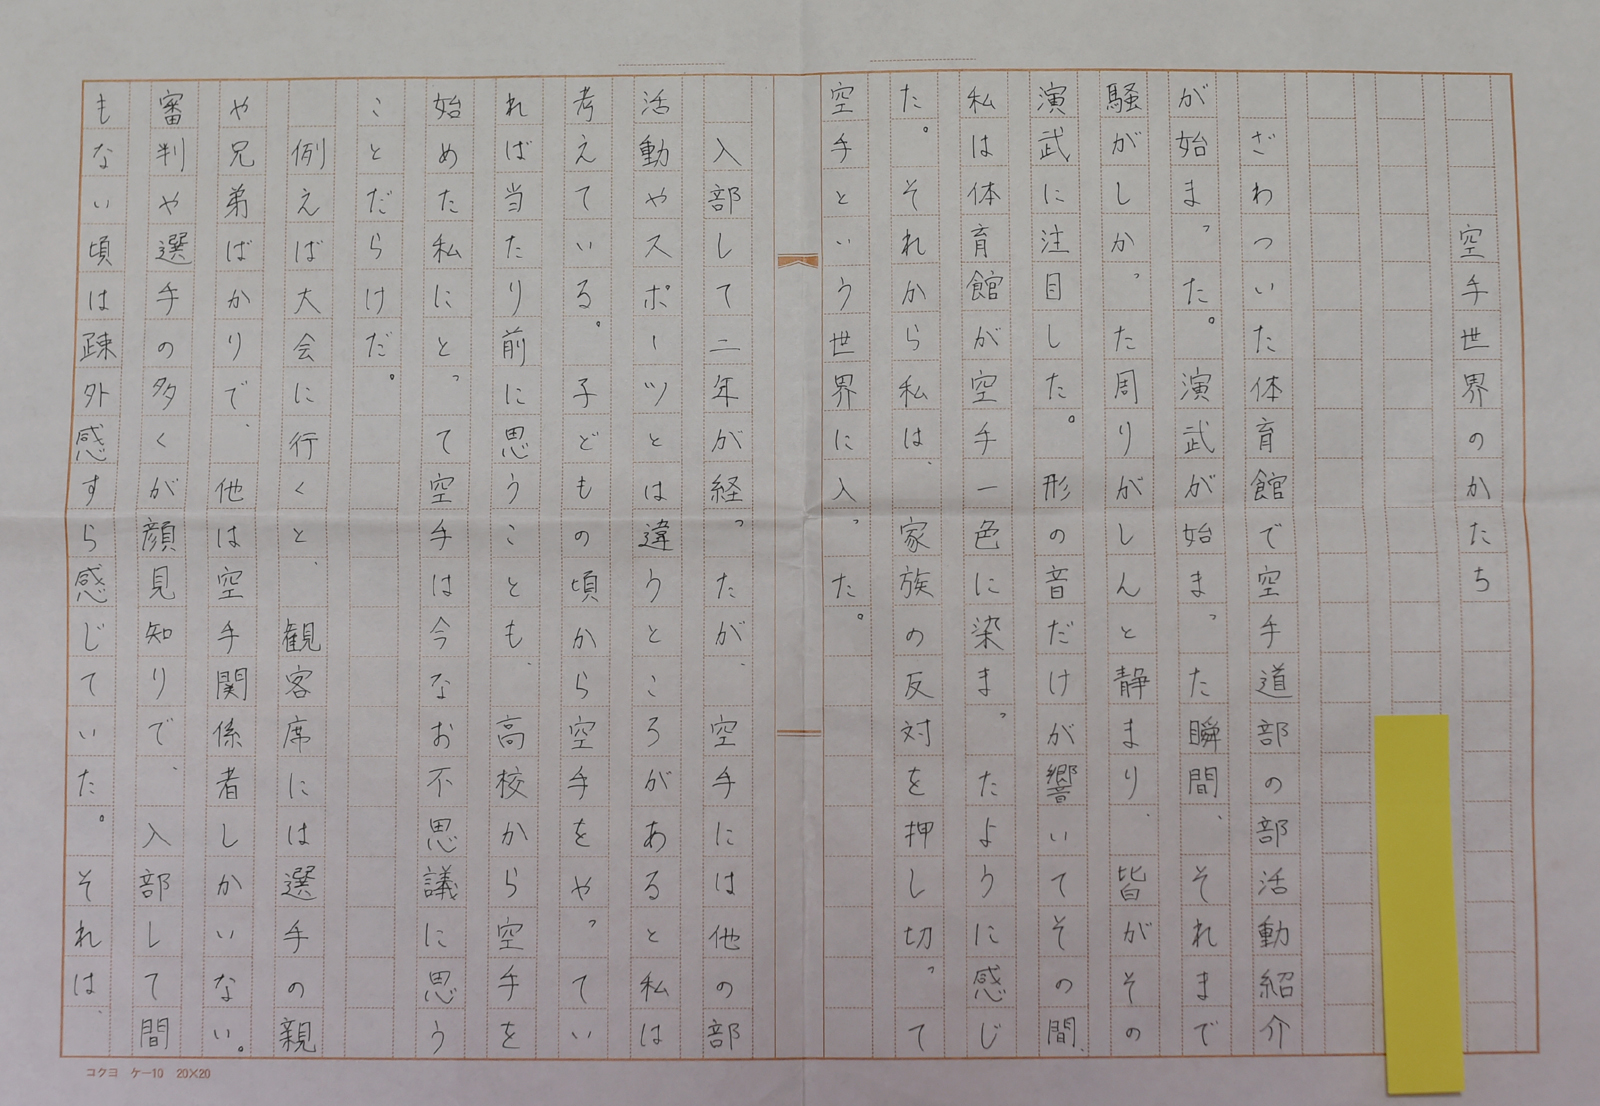 空手世界のかたち
ざわついた体育館で空手道部の部活動紹介
が始まった。演武が始まった瞬間、それまで
騒がしかった周りがしんと静まり、皆がその
演武に注目した。形の音だけが響いてその間、
私は体育館が空手一色に染まったように感じ
た。それから私は、家族の反対を押し切って
空手という世界に入った。
入部して二年が経ったが、空手には他の部
活動やスポーツとは違うところがあると私は
考えている。子どもの頃から空手をやってい
れば当たり前に思うことも、高校から空手を
始めた私にとって空手は今なお不思議に思う
ことだらけだ。
例えば大会に行くと、観客席には選手の親
や兄弟ばかりで、他は空手関係者しかいない。
審判や選手の多くが顔見知りで、入部して間
もない頃は疎外感すら感じていた。それは、
コクヨ ケー10 20×20